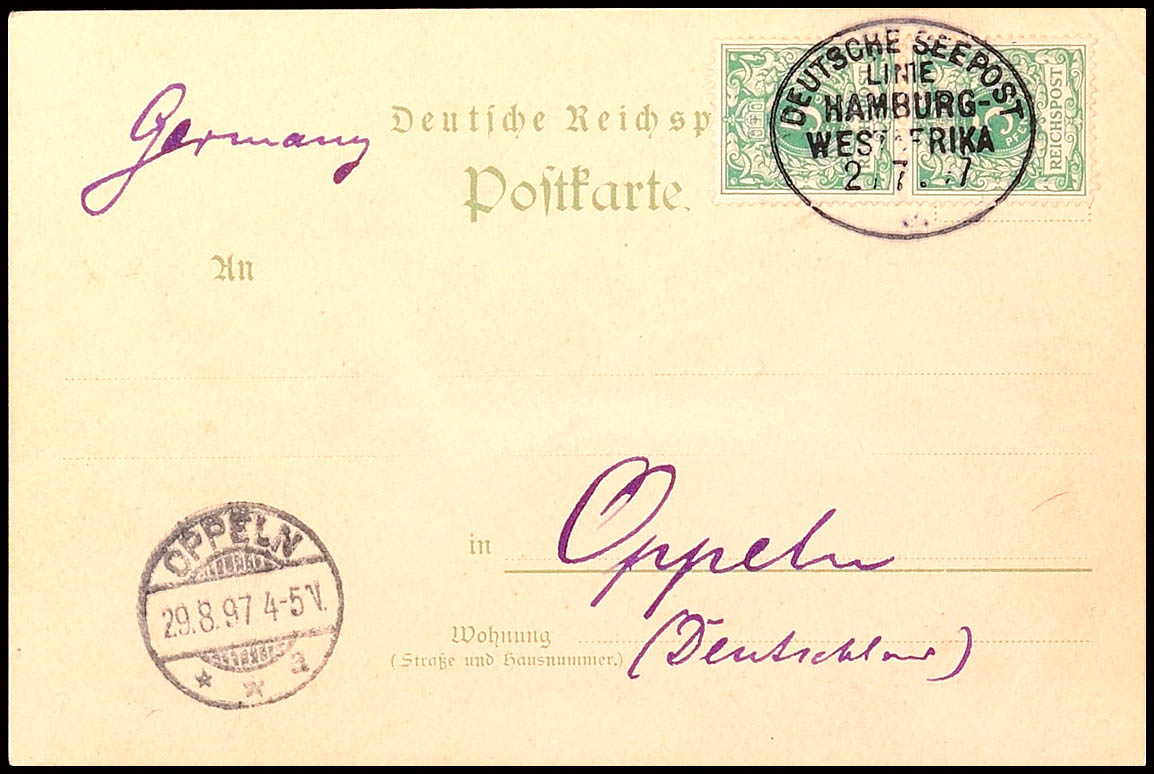 DEUTSCHE SEEPOST
LINIE
HAMBURG-
WESTAFRIKA
2 7 7
REICHSPOST
Germany
Deutsche Reichsp
Postkarte.
An
OPPELN
29.8.97 4-5 V.
* * a
in Oppeln
Wohnung (Deutschland)
(Straße und Hausnummer.)